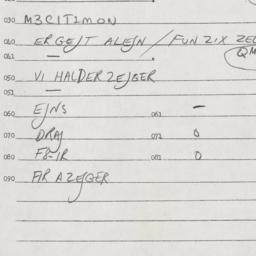 030 M3CITIMON
040 ERGEJT ALEJN / FUNZIX ZEL
041
050 VI HALDERZEJGER
051
060 EJNS 061 –
070 DRAJ 071 0
080 081 0
090 AR AZEJGER